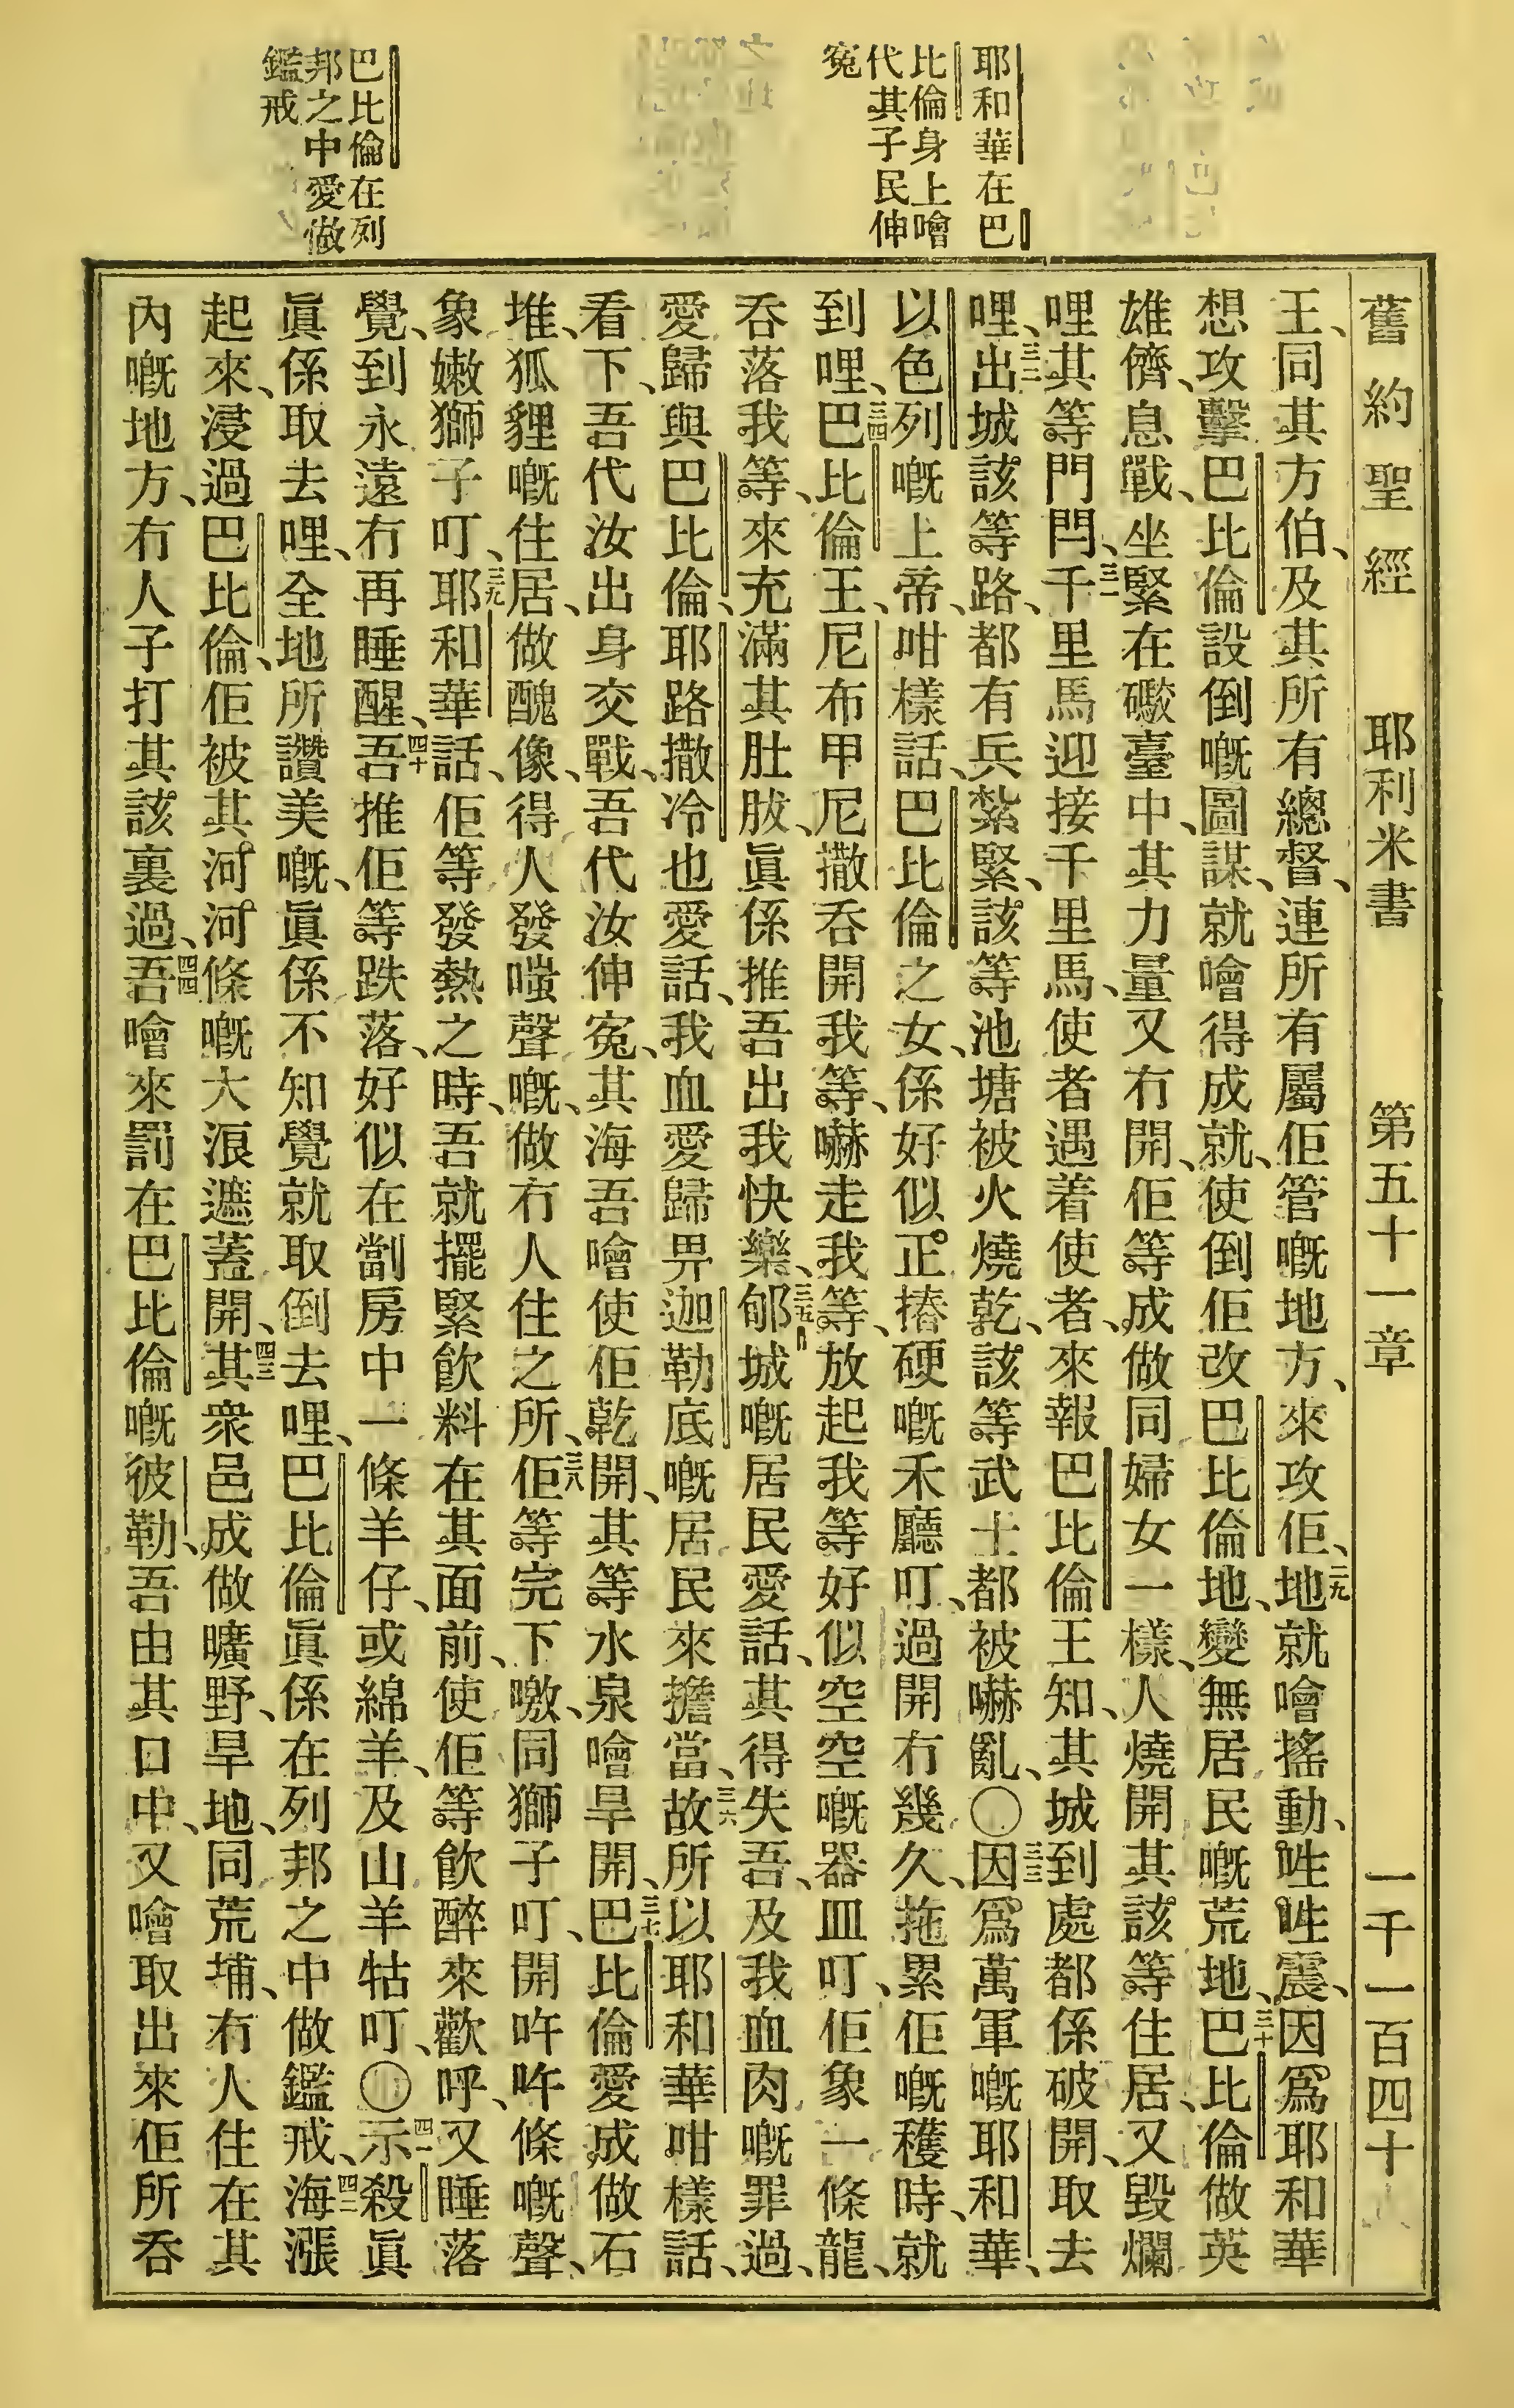 耶和華在巴
比倫身上噲
代其子民伸
寃
巴比倫在列
邦之中愛做
鑑戒
舊約聖經 耶利米書 第五十一章 一千一百四十
王、同其方伯、及其所有總督、連所有屬佢管嘅地方、來攻佢、二九地就噲搖動、貹貹震、因爲耶和華
想攻擊巴比倫設倒嘅圖謀、就噲得成就、使倒佢改巴比倫地、變無居民嘅荒地、三十巴比倫做英
雄儕、息戰、坐緊在礮臺中、其力量又冇開、佢等成做同婦女一樣、人燒開其該等住居、又毀爛
哩其等門閂、三一千里馬迎接千里馬、使者遇着使者、來報巴比倫王知、其城到處都係破開、取去
哩、三二出城該等路、都有兵紮緊、該等池塘被火燒乾、該等武士都被嚇亂、〇三三因爲萬軍嘅耶和華、
以色列嘅上帝、咁樣話、巴比倫之女、係好似正㨋硬嘅禾廳叮、過開冇幾久、拖累佢嘅穫時、就
到哩、三四巴比倫王、尼布甲尼撒吞開我等、嚇走我等、放起我等好似空空嘅器皿叮、佢象一條龍、
吞落我等、來充滿其肚胈、眞係推吾出我快樂、三五郇城嘅居民愛話、其得失吾、及我血肉嘅罪過、
愛歸與巴比倫、耶路撒冷也愛話、我血愛歸畀迦勒底嘅居民來擔當、三六故所以耶和華咁樣話、
看下、吾代汝出身交戰、吾代汝伸寃、其海吾噲使佢乾開、其等水泉噲旱開、三七巴比倫愛成做石
堆、狐貍嘅住居、做醜像、得人發嗤聲嘅、做冇人住之所、三八佢等完下噭、同獅子叮、開吘吘條嘅聲、
象嫩獅子叮、三九耶和華話、佢等發熱之時、吾就擺緊飮料在其面前、使佢等飮醉來歡呼、又睡落
覺、到永遠冇再睡醒、四十吾推佢等跌落、好似在劏房中一條羊仔、或綿羊、及山羊牯叮、〇四一示殺眞
眞係取去哩、全地所讚美嘅、眞係不知覺就取倒去哩、巴比倫眞係在列邦之中做鑑戒、四二海漲
起來、浸過巴比倫、佢被其河河條嘅大浪遮蓋開、四三其衆邑成做曠野、旱地、同荒埔、冇人住在其
內嘅地方、冇人子打其該裏過、四四吾噲來罰在巴比倫嘅彼勒、吾由其口中、又噲取出來佢所吞